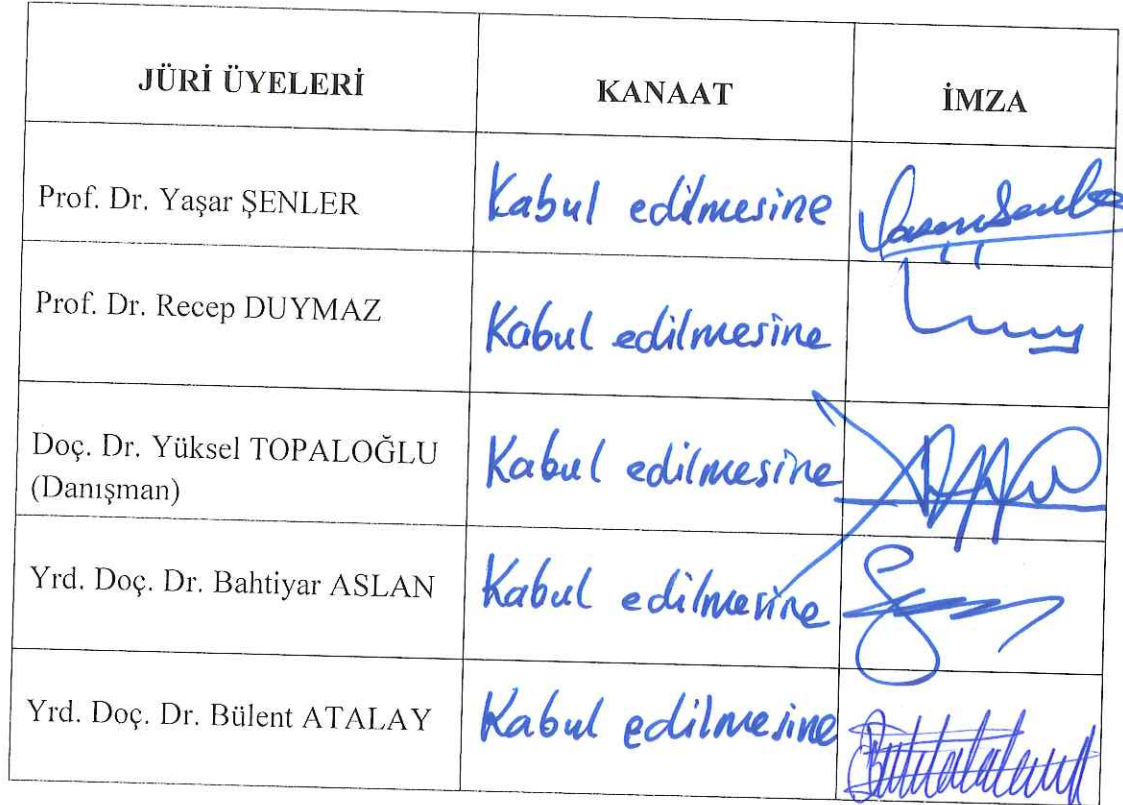 JÜRİ ÜYELERİ KANAAT İMZA
Prof. Dr. Yaşar ŞENLER Kabul edilmesine
Prof. Dr. Recep DUYMAZ Kabul edilmesine
Doç. Dr. Yüksel TOPALOĞLU Kabul edilmesine
(Danışman)
Yrd. Doç. Dr. Bahtiyar ASLAN Kabul edilmesine
Yrd. Doç. Dr. Bülent ATALAY Kabul edilmesine